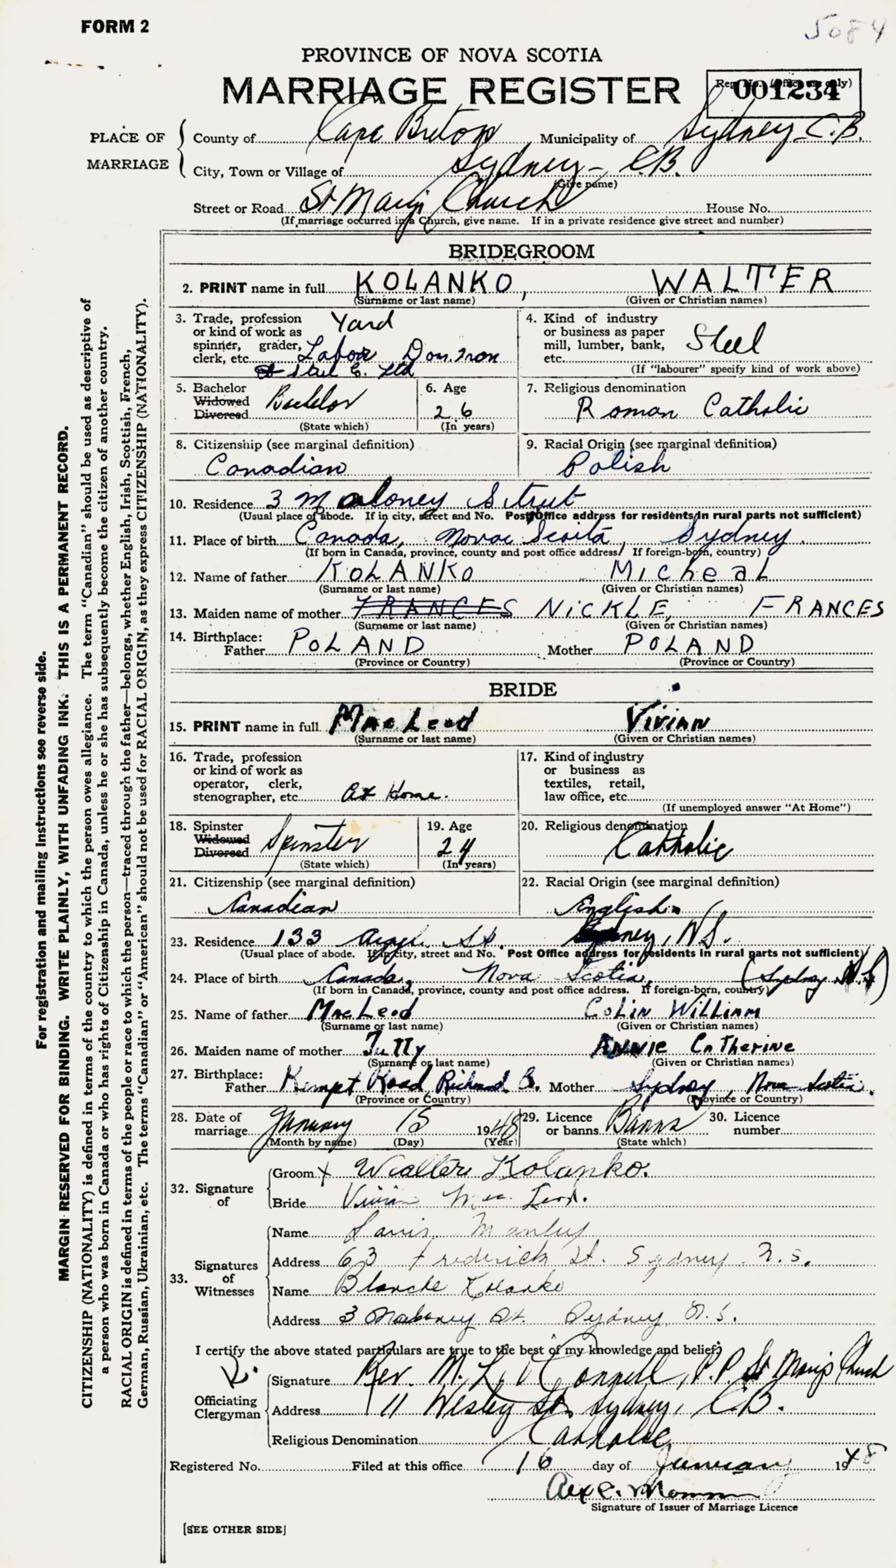 FORM 2
5084
PROVINCE OF NOVA SCOTIA
MARRIAGE REGISTER
001234
PLACE OF MARRIAGE
County of Cape Breton Municipality of Sydney C.B.
City, Town or Village of Sydney - C.B.
(Give name)
Street or Road St Mary's Church House No.
(If marriage occurred in a Church, give name. If in a private residence give street and number)
BRIDEGROOM
2. PRINT name in full KOLANKO, WALTER
(Surname or last name) (Given or Christian names)
3. Trade, profession or kind of work as spinner, grader, clerk, etc. Yard Labor Dom. Iron & Steel C. Ltd
4. Kind of industry or business as paper mill, lumber, bank, etc. Steel
(If "labourer" specify kind of work above)
5. Bachelor Widowed Divorced Bachelor
(State which)
6. Age 26
(In years)
7. Religious denomination Roman Catholic
8. Citizenship (see marginal definition) Canadian
9. Racial Origin (see marginal definition) Polish
10. Residence 3 Maloney Street
(Usual place of abode. If in city, street and No. Post Office address for residents in rural parts not sufficient)
11. Place of birth Canada, Novae Scotia, Sydney
(If born in Canada, province, county and post office address. If foreign-born, country)
12. Name of father KOLANKO MicheaL
(Surname or last name) (Given or Christian names)
13. Maiden name of mother FRANCES NICKLE, FRANCES
(Surname or last name) (Given or Christian names)
14. Birthplace:
Father POLAND Mother POLAND
(Province or Country) (Province or Country)
BRIDE
15. PRINT name in full MacLeod Vivian
(Surname or last name) (Given or Christian names)
16. Trade, profession or kind of work as operator, clerk, stenographer, etc. At Home.
17. Kind of industry or business as textiles, retail, law office, etc.
(If unemployed answer "At Home")
18. Spinster Widowed Divorced Spinster
(State which)
19. Age 24
(In years)
20. Religious denomination Catholic
21. Citizenship (see marginal definition) Canadian
22. Racial Origin (see marginal definition) English
23. Residence 133 St. Sydney, N.S.
(Usual place of abode. If in city, street and No. Post Office address for residents in rural parts not sufficient)
24. Place of birth Canada, Nova Scotia, (Sydney N.S)
(If born in Canada, province, county and post office address. If foreign-born, country)
25. Name of father MacLeod Colin William
(Surname or last name) (Given or Christian names)
26. Maiden name of mother Tutty Annie Catherine
(Surname or last name) (Given or Christian names)
27. Birthplace:
Father Kempt Road Richmd C. Mother Sydney, Nova Scotia
(Province or Country) (Province or Country)
28. Date of marriage January 15 1948
(Month by name) (Day) (Year)
29. Licence or banns Banns
(State which)
30. Licence number
32. Signature of
Groom X Walter Kolanko.
Bride Vivian Mac Leod.
33. Signatures of Witnesses
Name Manley
Address 63 Frederick St. Sydney N.S.
Name Blanche Kolanko
Address 3 Maloney St. Sydney N.S.
I certify the above stated particulars are true to the best of my knowledge and belief:
Officiating Clergyman
Signature Rev. M. L. O'Connell, P.P. St Mary's Church
Address 11 Wesley St. Sydney, C.B.
Religious Denomination Catholic
Registered No. Filed at this office 16 day of January 1948
Signature of Issuer of Marriage Licence
[SEE OTHER SIDE]
For registration and mailing instructions see reverse side.
MARGIN RESERVED FOR BINDING. WRITE PLAINLY, WITH UNFADING INK. THIS IS A PERMANENT RECORD.
CITIZENSHIP (NATIONALITY) is defined in terms of the country to which the person owes allegiance. The term "Canadian" should be used as descriptive of
a person who was born in Canada or who has rights of Citizenship in Canada, unless he or she has subsequently become the citizen of another country.
RACIAL ORIGIN is defined in terms of the people or race to which the person—traced through the father—belongs, whether English, Irish, Scottish, French,
German, Russian, Ukrainian, etc. The terms "Canadian" or "American" should not be used for RACIAL ORIGIN, as they express CITIZENSHIP (NATIONALITY).